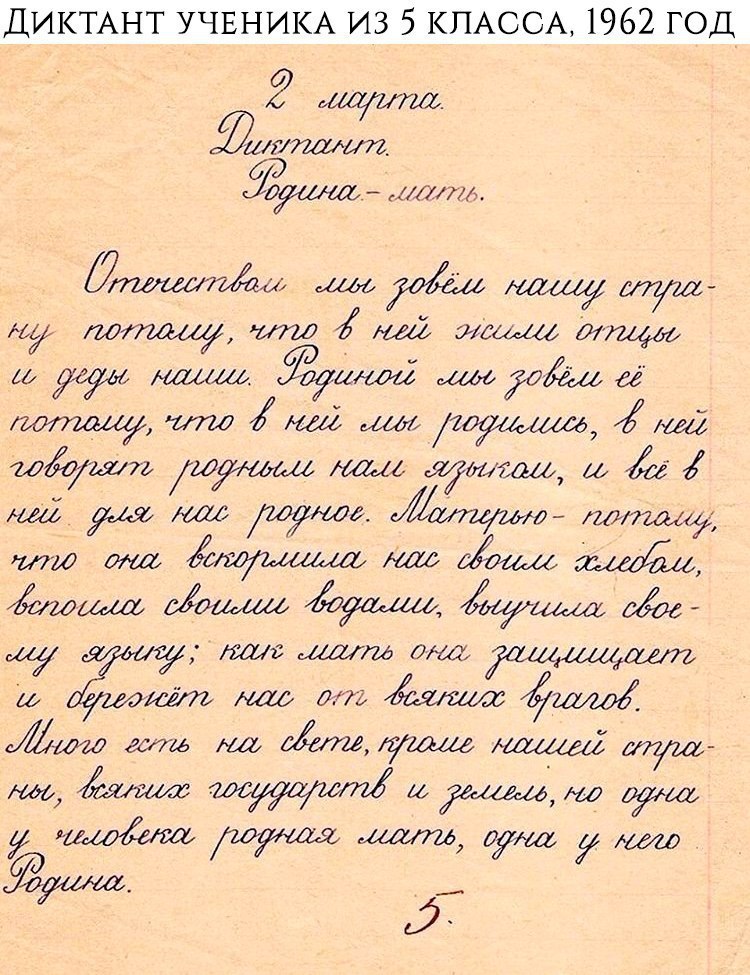 Диктант ученика из 5 класса, 1962 год
2 марта.
Диктант.
Родина - мать.
Отечеством мы зовём нашу стра-
ну потому, что в ней жили отцы
и деды наши. Родиной мы зовём её
потому, что в ней мы родились, в ней
говорят родным нам языком, и всё в
ней для нас родное. Матерью - потому,
что она вскормила нас своим хлебом,
вспоила своими водами, выучила свое-
му языку; как мать она защищает
и бережёт нас от всяких врагов.
Много есть на свете, кроме нашей стра-
ны, всяких государств и земель, но одна
у человека родная мать, одна у него
Родина.
5.